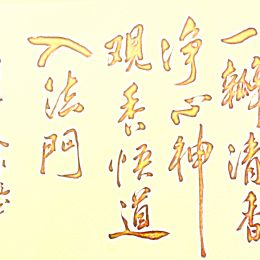 一瓣清香
净心神
观香悟道
入法門